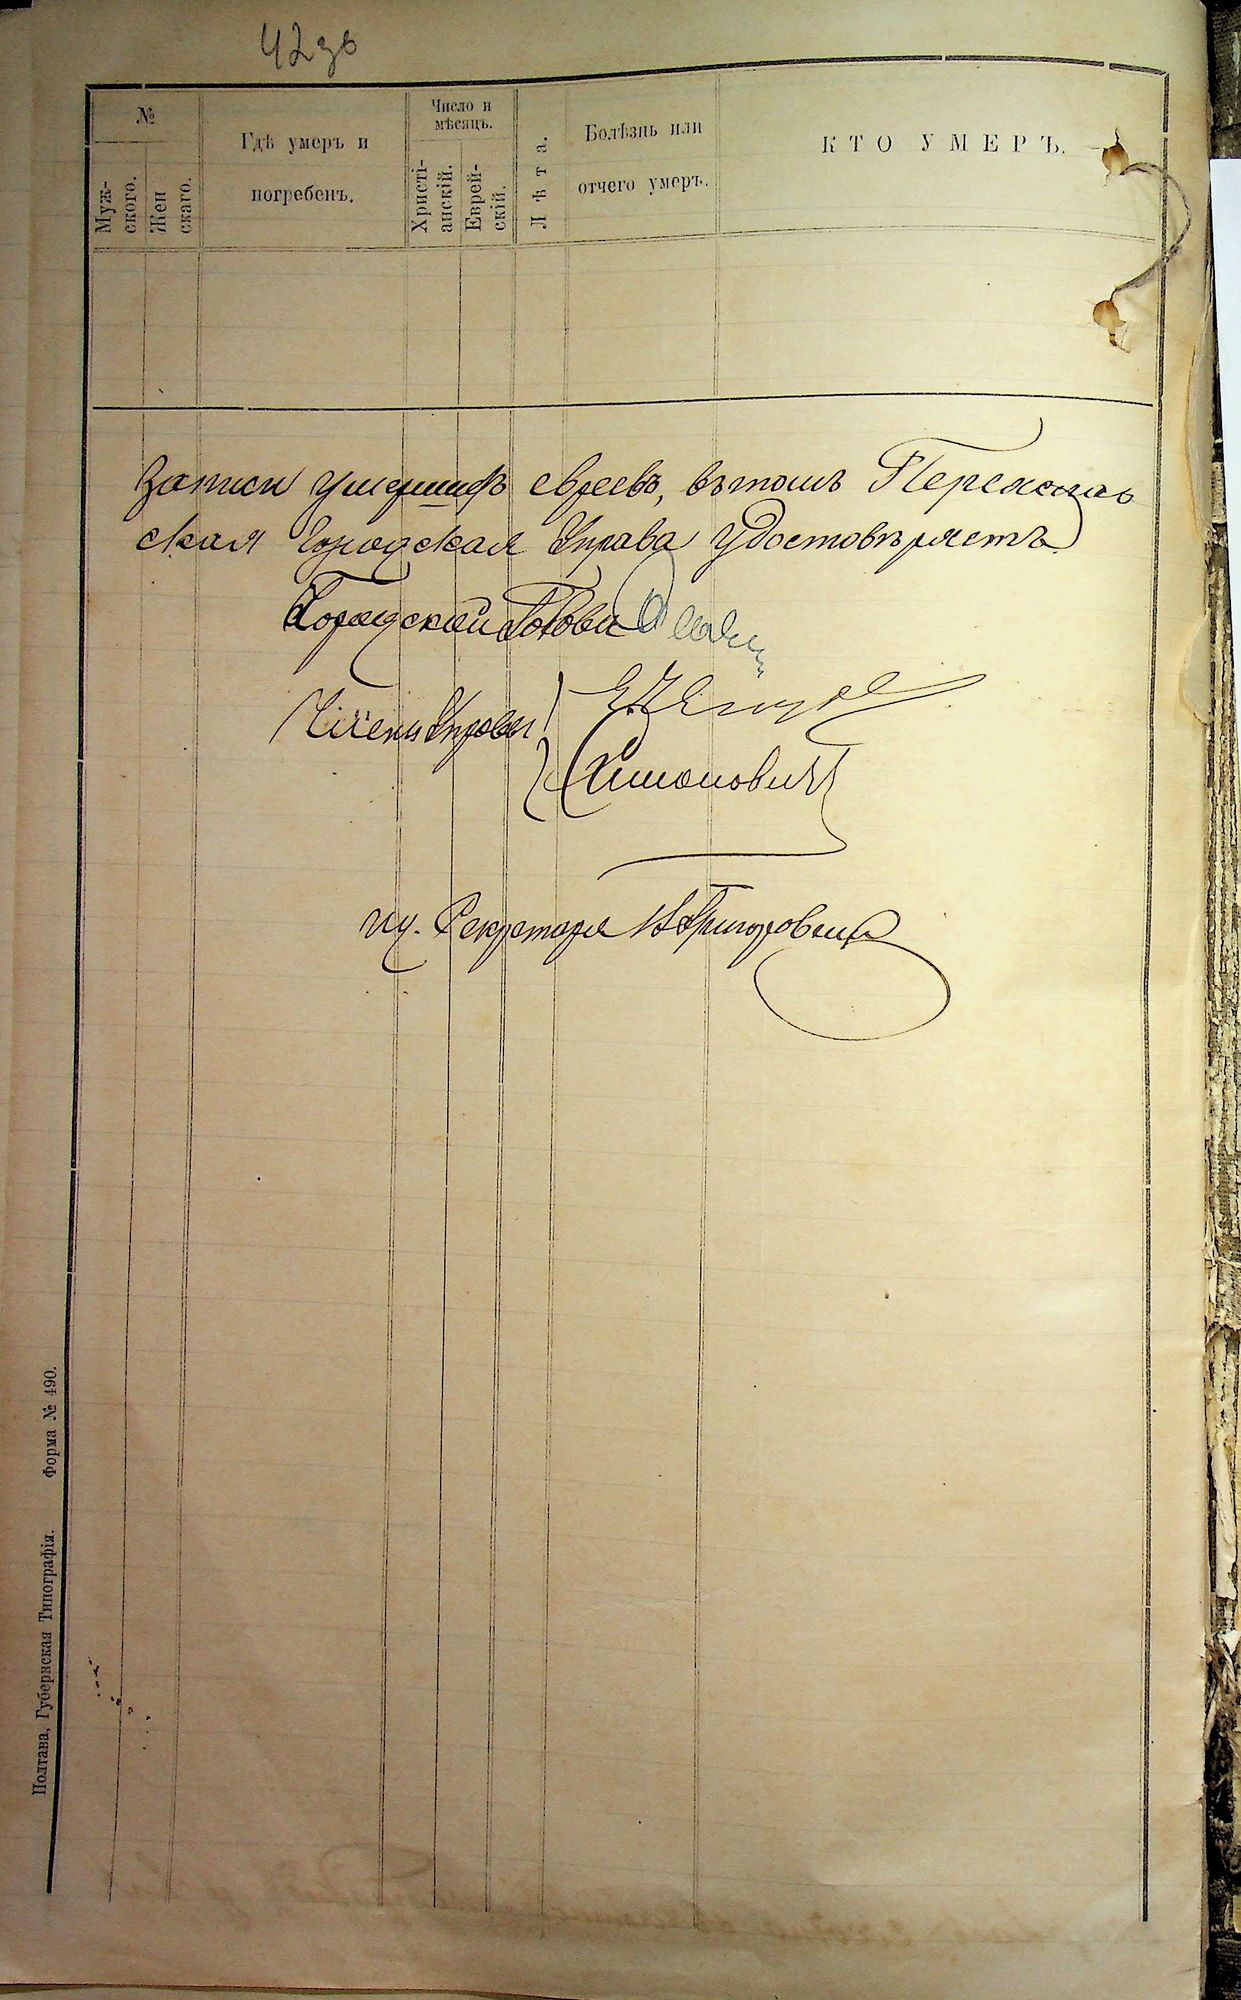 42зв
№
Муж-
ского.
Жен
скаго.
Гдѣ умеръ и
погребенъ.
Число и
мѣсяцъ.
Христі-
анскій.
Еврей-
скій.
Лѣта.
Болѣзнь или
отчего умеръ.
КТО УМЕРЪ.
Записи умершихъ евреевъ, въ томъ Переяслав
ская Городская Управа удостовѣряетъ
Городской Голова
Члены Управы
Симонович
и. д. Секретаря Григоровичъ
Полтава, Губернская Типографія. Форма № 490.